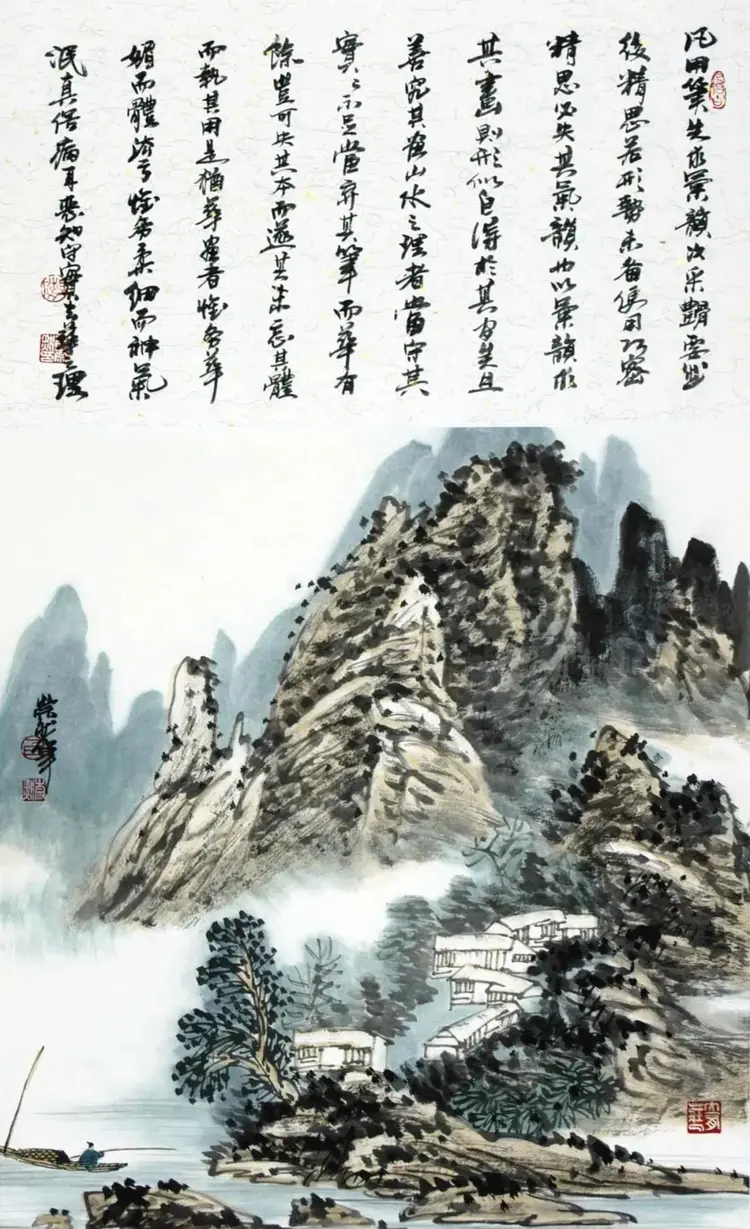 凡用筆先求氣韻次采體要然
後精思若形勢未備便用巧密
精思必失其氣韻也以氣韻求
其畫則形似自得於其間矣且
善究其畫山水之理者當守其
實實不足當棄其筆而華有
餘豈可失其本而逐其末忘其體
而執其用是猶華畫者惟務華
媚而體法虧惟務柔細而神氣
泯真俗病耳惡知守實去華之理